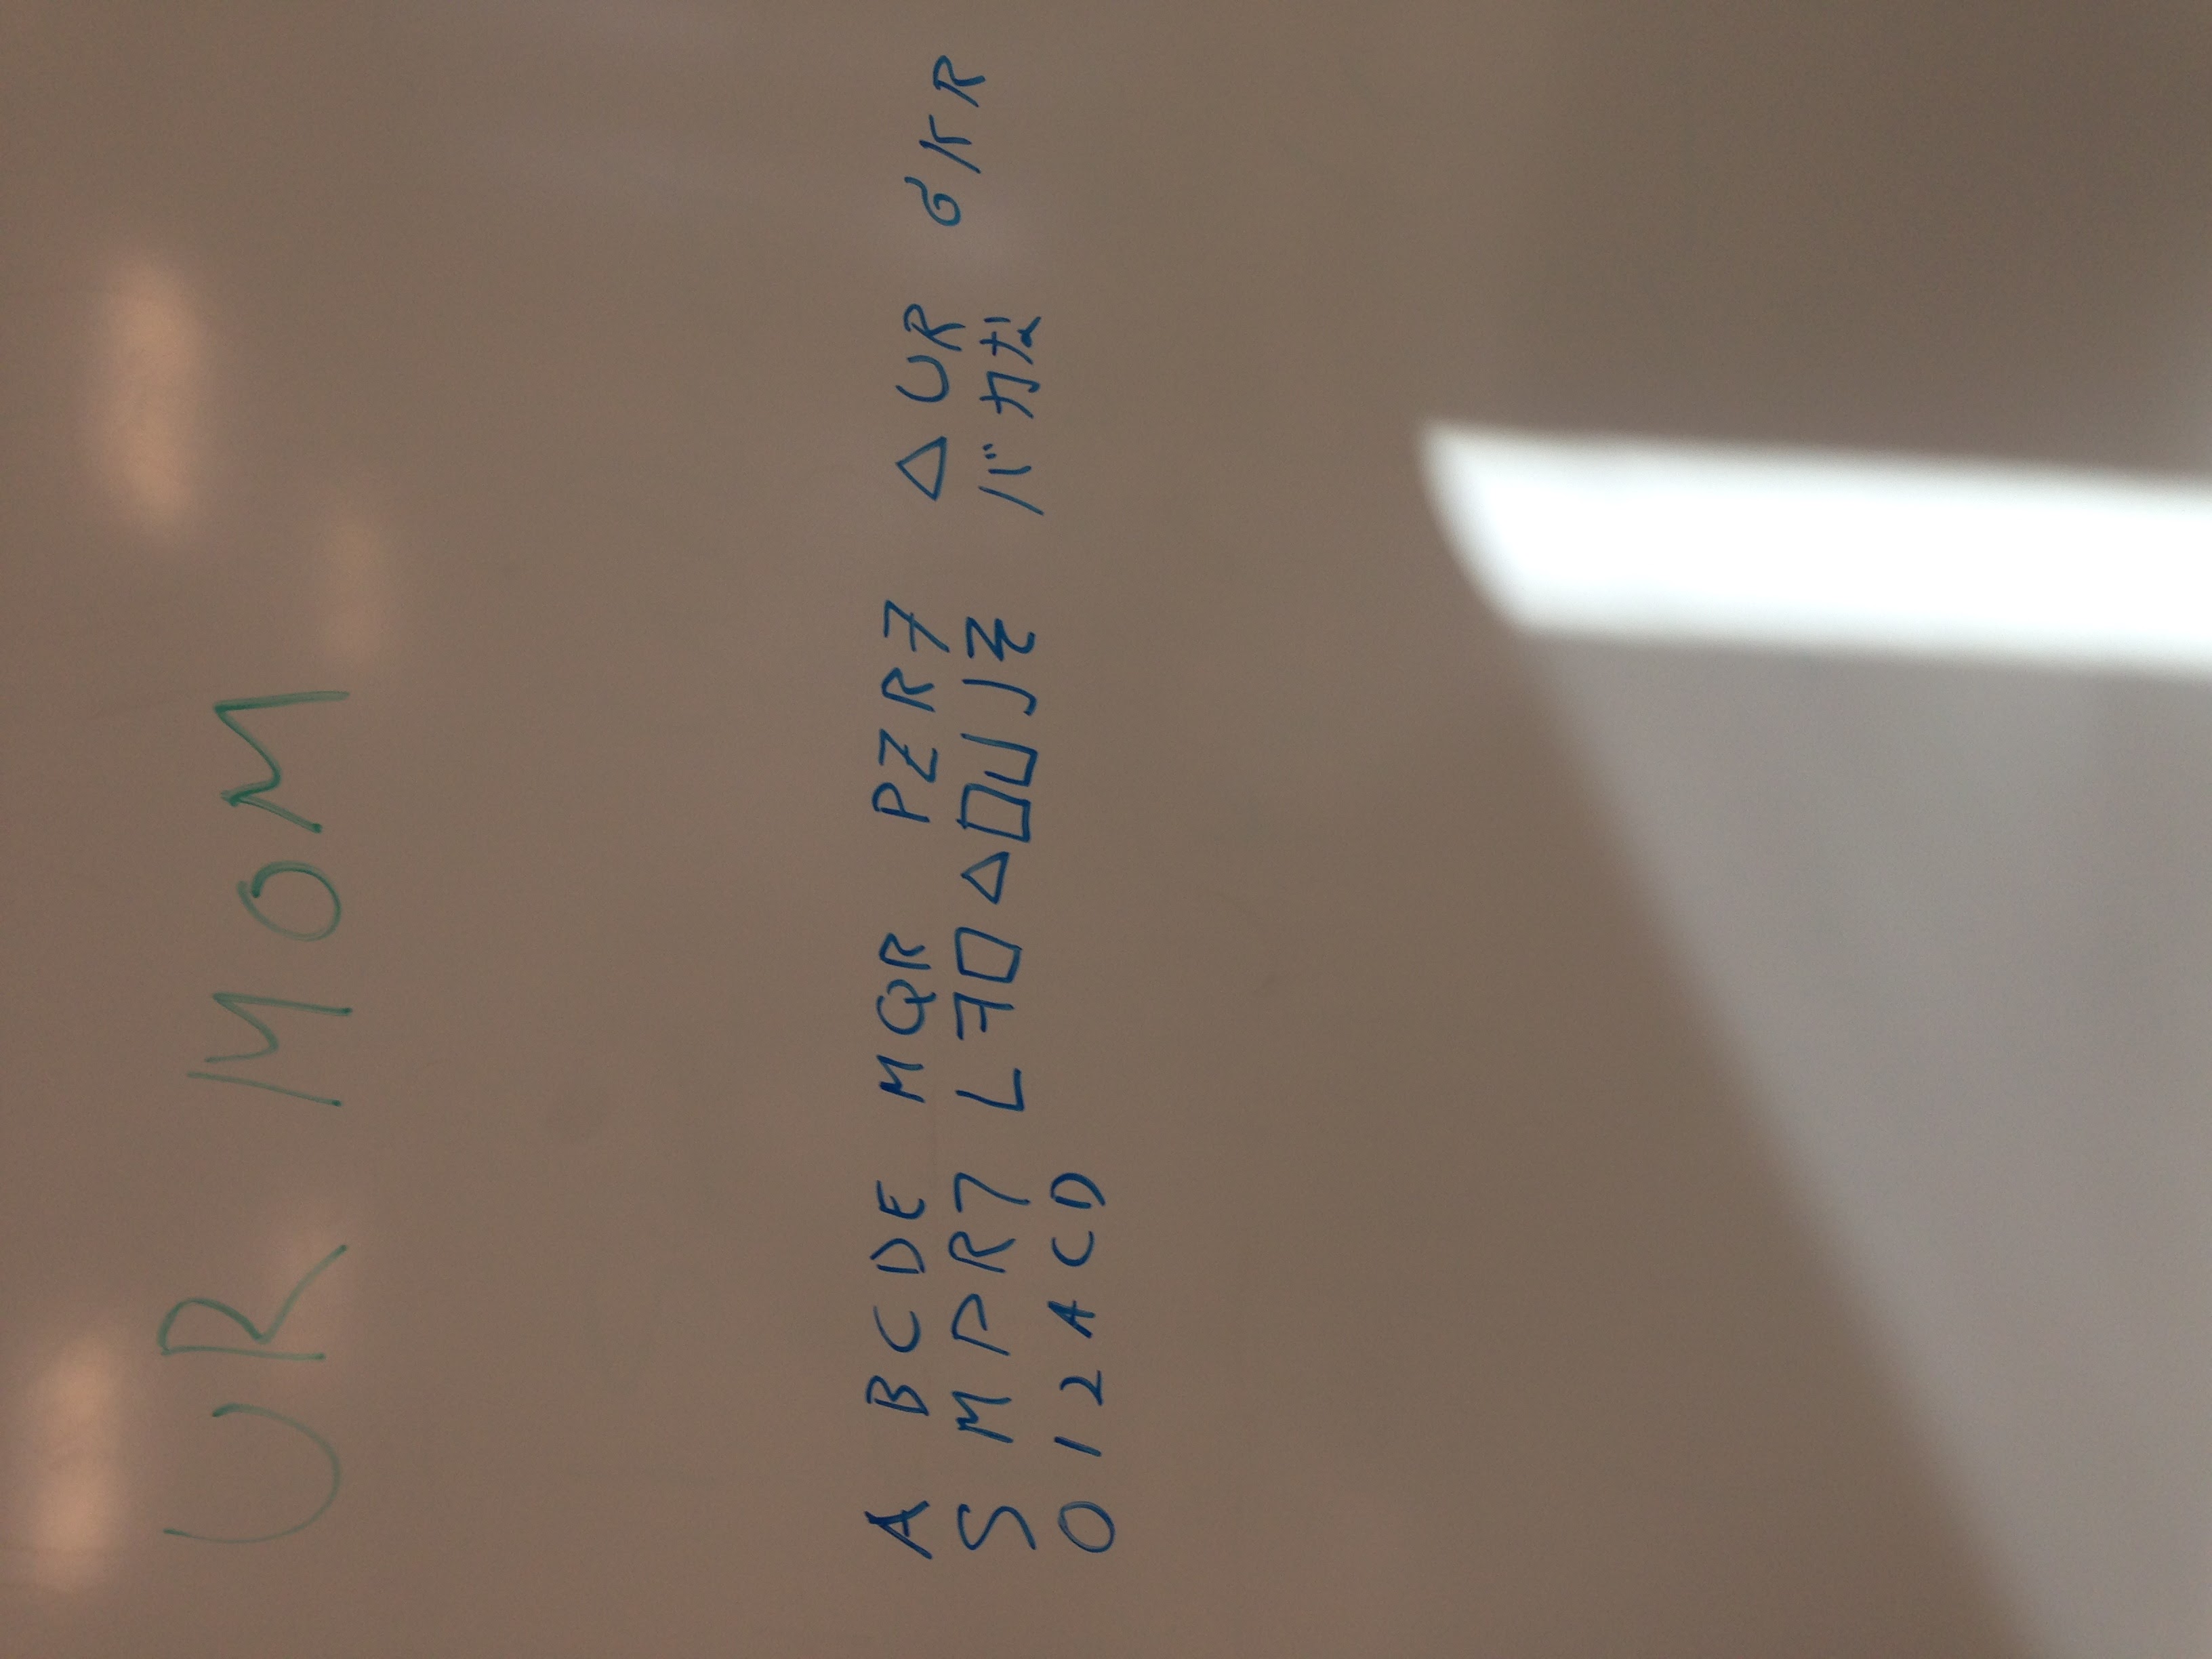 UR MOM
A BCDE MQR PZR7 △UR σKR
S MPR7 Lヲロ△ロ凵Jそ バカな
012ACD